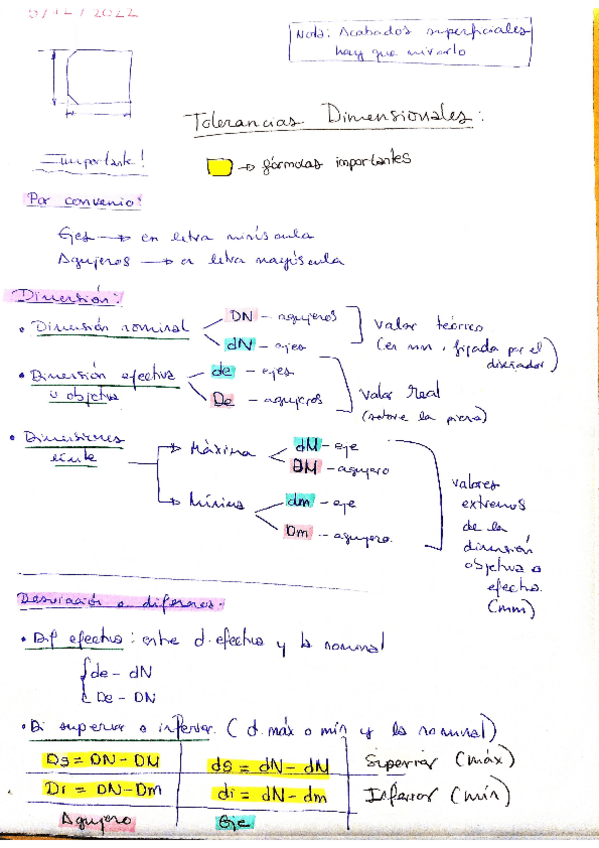 5/12/2022
Nota: Acabados superficiales
hay que mirarlo
Tolerancias Dimensionales:
Importante!
→ fórmulas importantes
Por convenio:
Ejes → en letra minúscula
Agujeros → en letra mayúscula
Dimensión:
• Dimensión nominal
DN - agujeros
dN - ejes
valor teórico
(en mm, fijada por el
diseñador)
• Dimensión efectiva
u objetiva
de - ejes
De - agujeros
valor real
(sobre la pieza)
• Dimensiones
límite
→ Máxima
dM - eje
DM - agujero
→ Mínima
dm - eje
Dm - agujero.
valores
extremos
de la
dimensión
objetiva o
efectiva.
(mm)
Desviación o diferencia:
• Dif efectiva: entre d. efectiva y la nominal
de - dN
De - DN
• Di superior o inferior. (d. máx o mín y la nominal)
Ds = DN - DM
ds = dN - dM
Superior (máx)
Di = DN - Dm
di = dN - dm
Inferior (mín)
Agujero
Eje